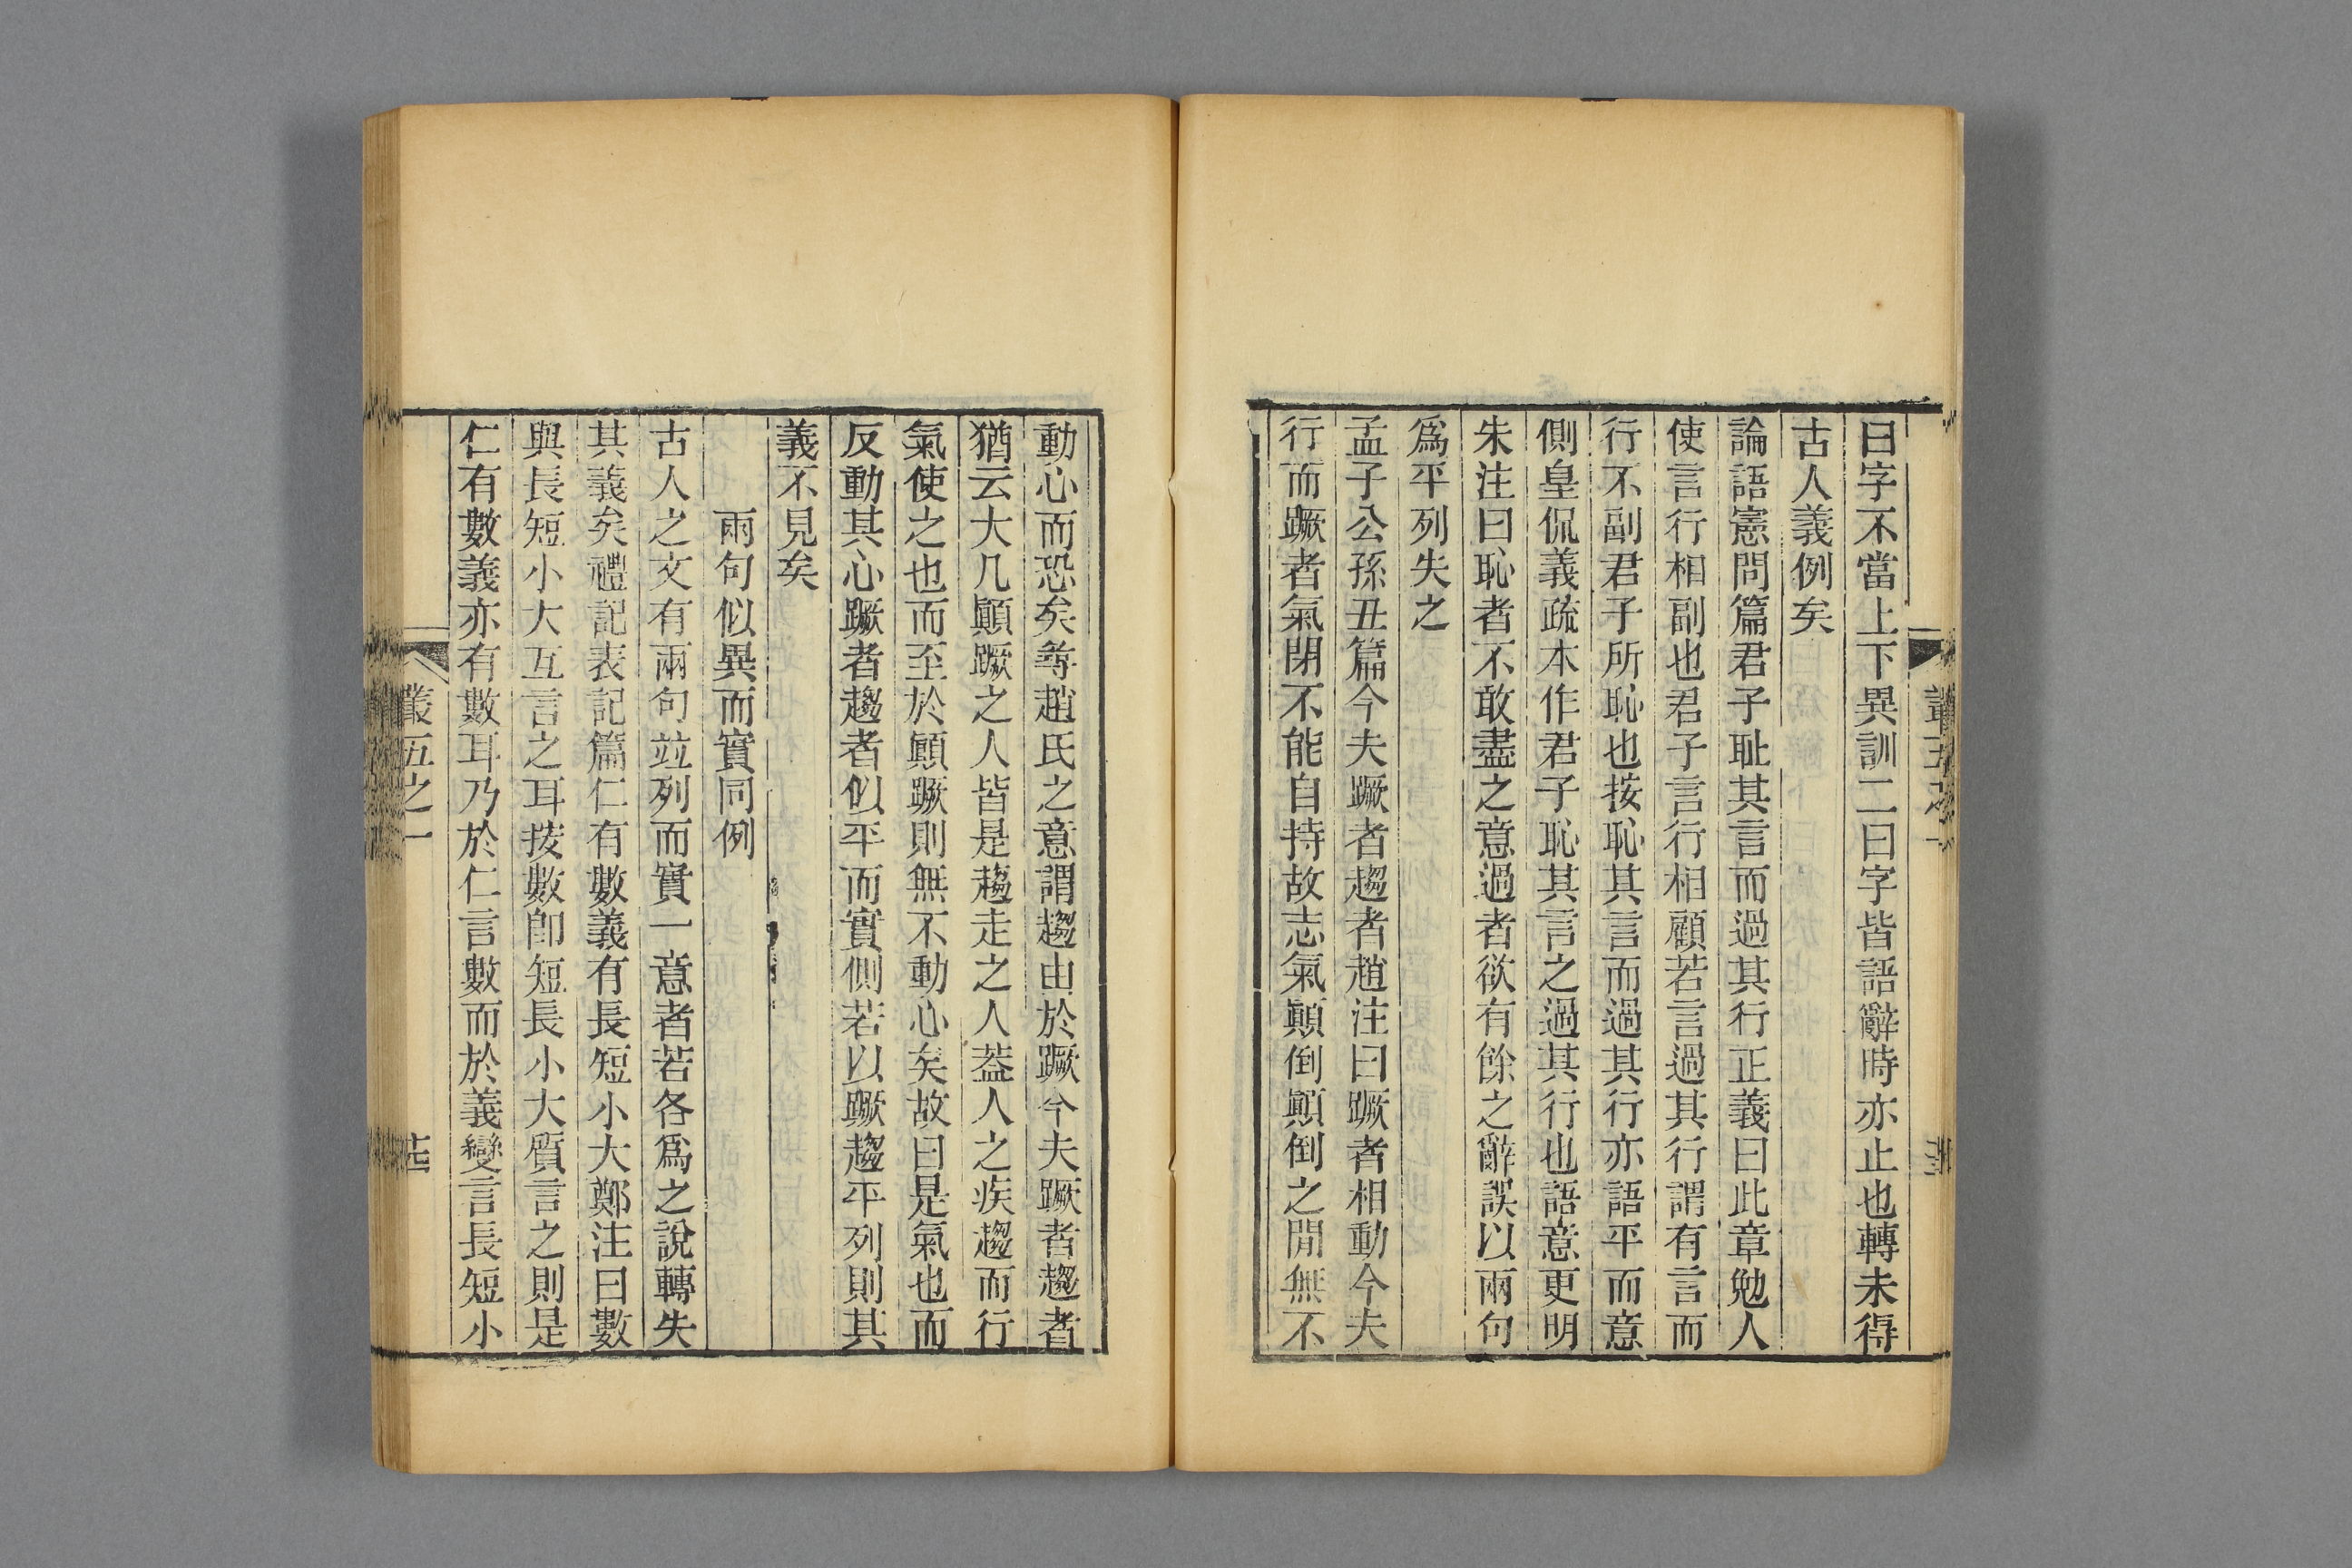 曰字不當上下異訓二曰字皆語辭時亦止也轉未得
古人義例矣
論語憲問篇君子耻其言而過其行正義曰此章勉人
使言行相副也君子言行相顧若言過其行謂有言而
行不副君子所恥也按恥其言而過其行亦語平而意
側皇侃義疏本作君子恥其言之過其行也語意更明
朱注曰恥者不敢盡之意過者欲有餘之辭誤以兩句
爲平列失之
孟子公孫丑篇今夫蹶者趨者趙注曰蹶者相動今夫
行而蹶者氣閉不能自持故志氣顚倒顚倒之閒無不
動心而恐矣尋趙氏之意謂趨由於蹶今夫蹶者趨者
猶云大凡顚蹶之人皆是趨走之人葢人之疾趨而行
氣使之也而至於顚蹶則無不動心矣故曰是氣也而
反動其心蹶者趨者似平而實側若以蹶趨平列則其
義不見矣
兩句似異而實同例
古人之文有兩句竝列而實一意者若各爲之說轉失
其義矣禮記表記篇仁有數義有長短小大鄭注曰數
與長短小大互言之耳按數卽短長小大質言之則是
仁有數義亦有數耳乃於仁言數而於義變言長短小
叢五之一